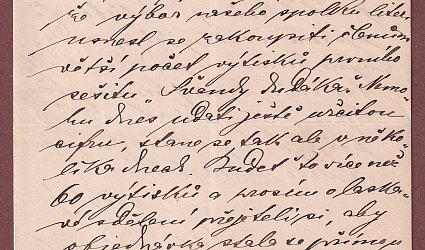 že výbor našeho spolku liter.
usnesl se zakoupiti členům
větší počet výtisků prvního
sešitu „Švandy dudáka". Nemo-
hu dnes udati ještě určitou
cifru, stane se tak ale v něko-
lika dnech. Budet' to více než
60 výtisků a prosím o laska-
vé sdělení přejete-li si, aby
objednávka stala se přímou